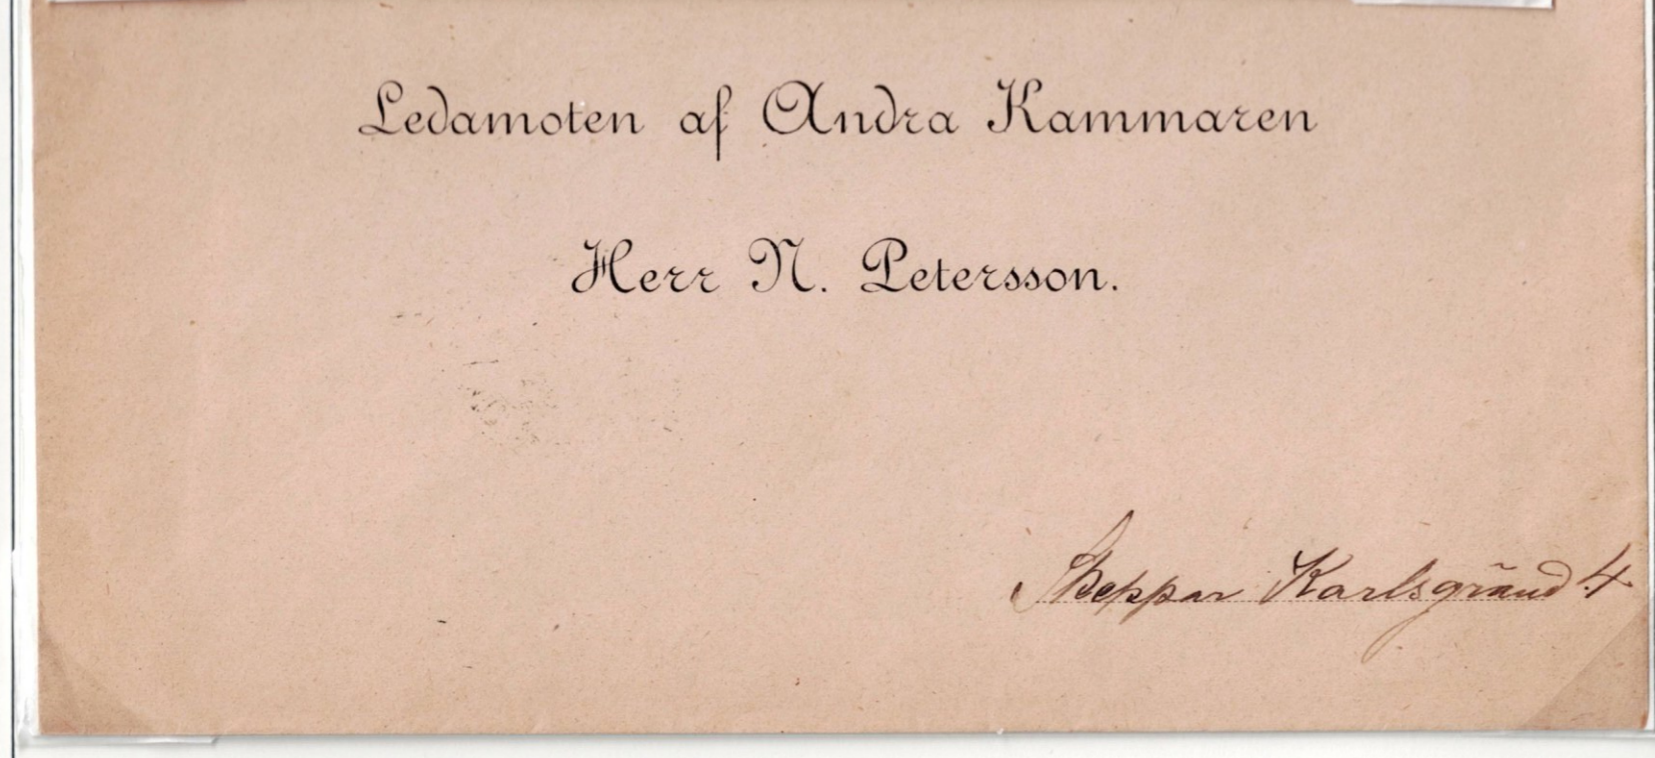 Ledamoten af Andra Kammaren
Herr N. Petersson.
Skeppar Karlsgränd 4